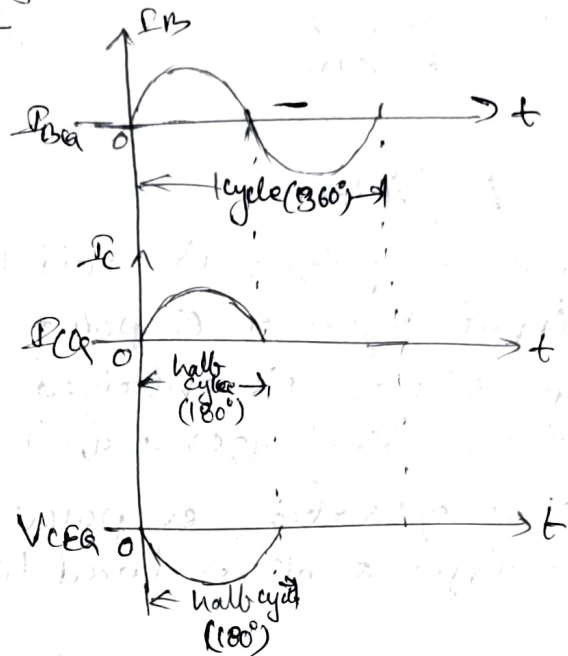 IB
IBQ
0
t
1 cycle (360°)
IC
ICQ
0
t
half
cycle
(180°)
VCEQ
0
t
half cycle
(180°)